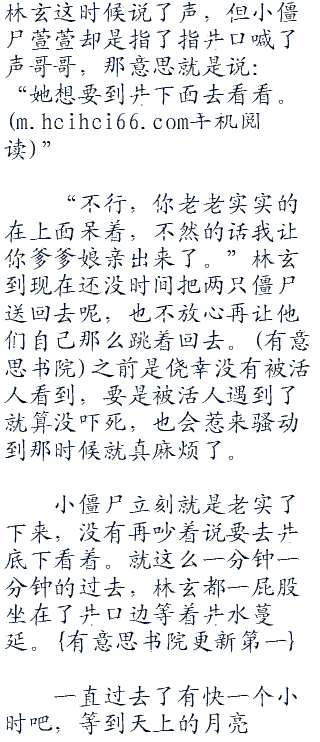 林玄这时候说了声，但小僵
尸萱萱却是指了指井口喊了
声哥哥，那意思就是说：
“她想要到井下面去看看。
(m.hcihci66.com手机阅
读)”
“不行，你老老实实的
在上面呆着，不然的话我让
你爹爹娘亲出来了。”林玄
到现在还没时间把两只僵尸
送回去呢，也不放心再让他
们自己那么跳着回去。(有意
思书院)之前是侥幸没有被活
人看到，要是被活人遇到了
就算没吓死，也会惹来骚动
到那时候就真麻烦了。
小僵尸立刻就是老实了
下来，没有再吵着说要去井
底下看着。就这么一分钟一
分钟的过去，林玄都一屁股
坐在了井口边等着井水蔓
延。{有意思书院更新第一}
一直过去了有快一个小
时吧，等到天上的月亮